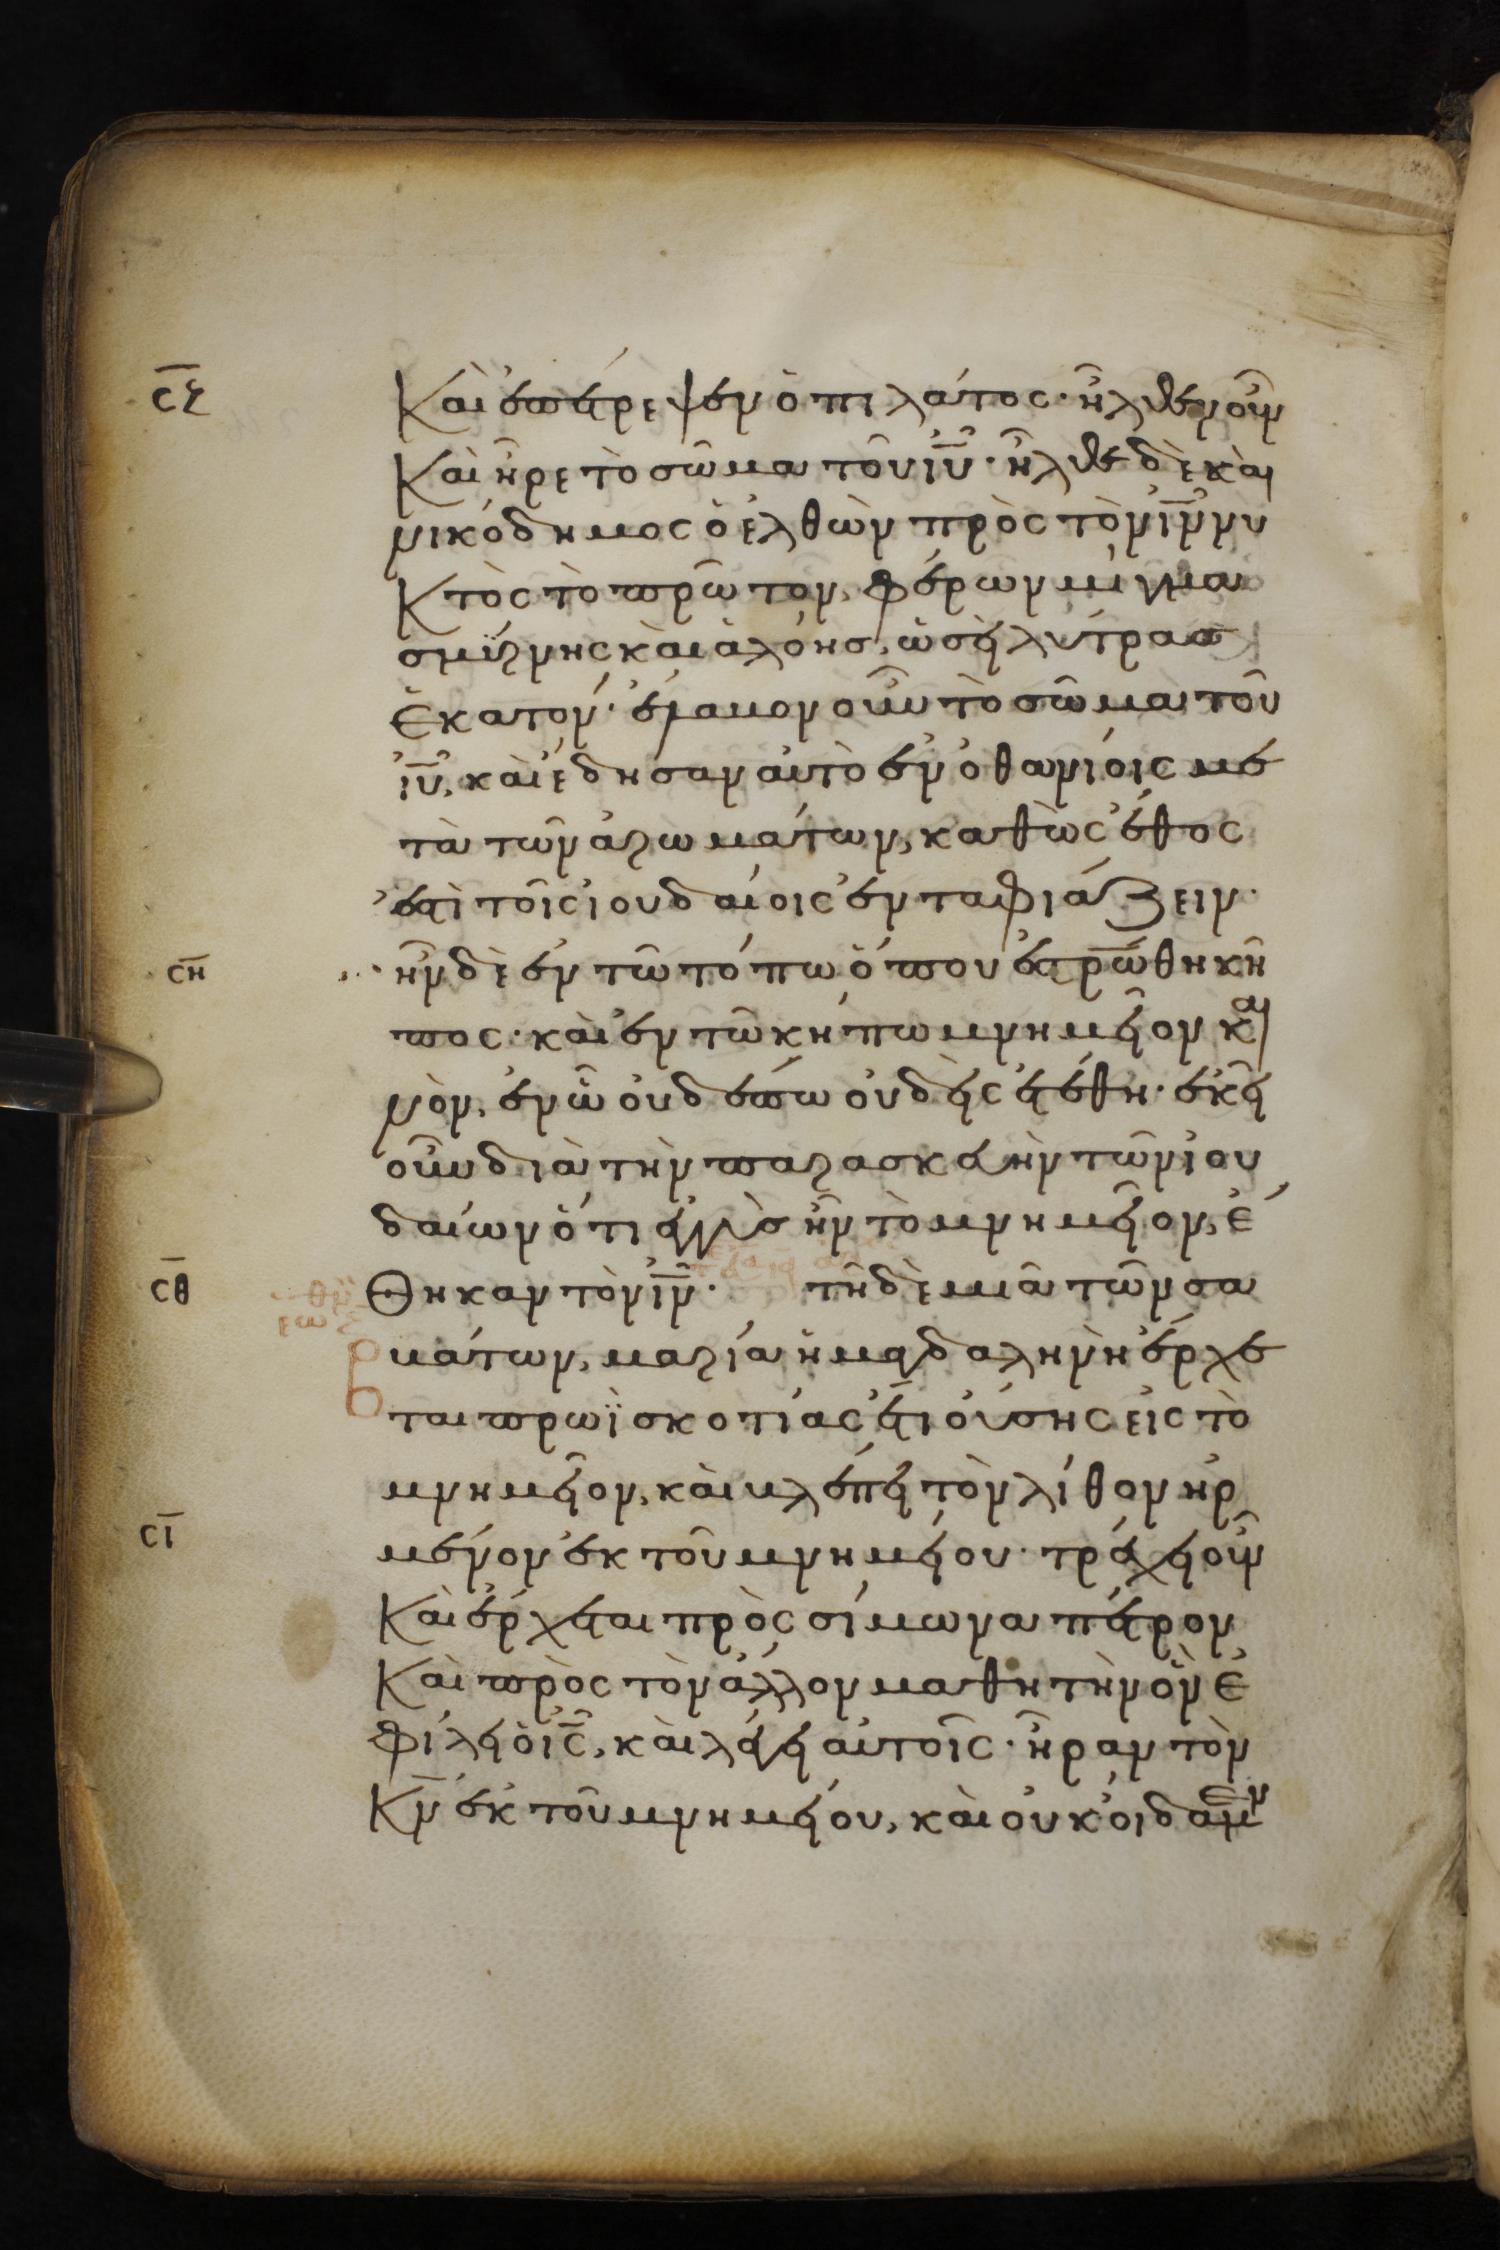 ϲζ
Καὶ ἐπέτρεψεν ὁ πιλάτος· ἦλθεν οὖν
Καὶ ἦρε τὸ σῶμα τοῦ ἰυ̅· ἦλθε δὲ καὶ
νικόδημος ὁ ἐλθὼν πρὸς τὸν ἰν̅ νυ
Κτὸς τὸ πρῶτον, φέρων μίγμα
σμύρνης καὶ ἀλόης, ὡσεὶ λύτρας
Ἑκατόν· ἔλαβον οὖν τὸ σῶμα τοῦ
ἰυ̅, καὶ ἔδησαν αὐτὸ ἐν ὀθωνίοις με
τὰ τῶν ἀρωμάτων, καθὼς ἔθος
ἐστὶ τοῖς ἰουδαίοις ἐνταφιάζειν·
ϲη
ἦν δὲ ἐν τῶ τόπω ὅπου ἐστρώθη κῆ
πος· καὶ ἐν τῶ κήπω μνημεῖον και
νὸν, ἐν ὧ οὐδέπω οὐδεὶς ἐτέθη· ἐκεῖ
οὖν διὰ τὴν παρασκευὴν τῶν ἰου
δαίων ὅτι ἐγγὺς ἦν τὸ μνημεῖον, ἔ
ϲθ
Θηκαν τὸν ἰν̅· τῆ δὲ μιᾶ τῶν σα
βάτων, μαρία ἡ μαγδαληνὴ ἔρχε
ται πρωῒ σκοτίας ἔτι οὔσης εἰς τὸ
μνημεῖον, καὶ βλέπει τὸν λίθον ἠρ
ϲι
μένον ἐκ τοῦ μνημείου· τρέχει οὖν
Καὶ ἔρχεται πρὸς σίμωνα πέτρον
Καὶ πρὸς τὸν ἄλλον μαθητὴν ὃν ἐ
φίλει ὁ ἰς̅, καὶ λέγει αὐτοῖς· ἦραν τὸν
Κν̅ ἐκ τοῦ μνημείου, καὶ οὐκ οἴδαμεν